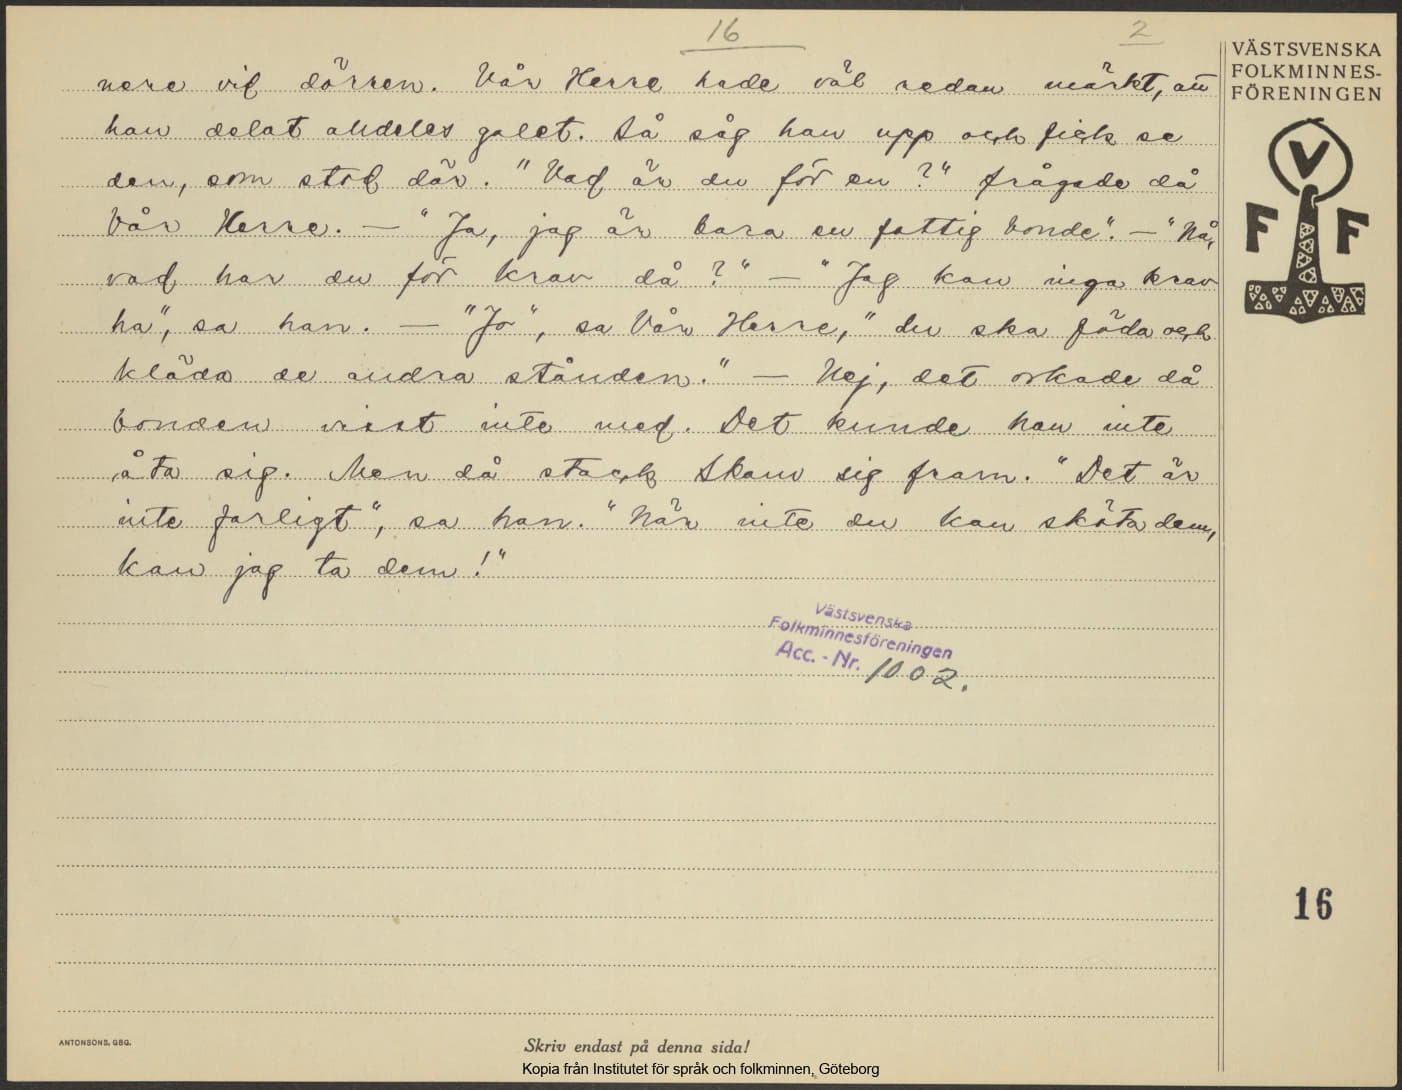 16
2
VÄSTSVENSKA
FOLKMINNES-
FÖRENINGEN
nere vid dörren. Vår Herre hade väl redan märkt, att
han delat alldeles galet. Så såg han upp och fick se
den, som stod där. "Vad är du för en?" frågade då
Vår Herre. — "Ja, jag är bara en fattig bonde". — "Nå,
vad har du för krav då?" — "Jag kan inga krav
ha", sa han. — "Jo", sa Vår Herre, "du ska föda och
kläda de andra stånden." — Nej, det orkade då
bonden visst inte med. Det kunde han inte
åta sig. Men då stack Skam sig fram. "Det är
inte farligt", sa han. "När inte du kan sköta dem,
kan jag ta dem!"
V
F F
Västsvenska
Folkminnesföreningen
Acc. - Nr. 1002.
16
ANTONSONS, GBG.
Skriv endast på denna sida!
Kopia från Institutet för språk och folkminnen, Göteborg